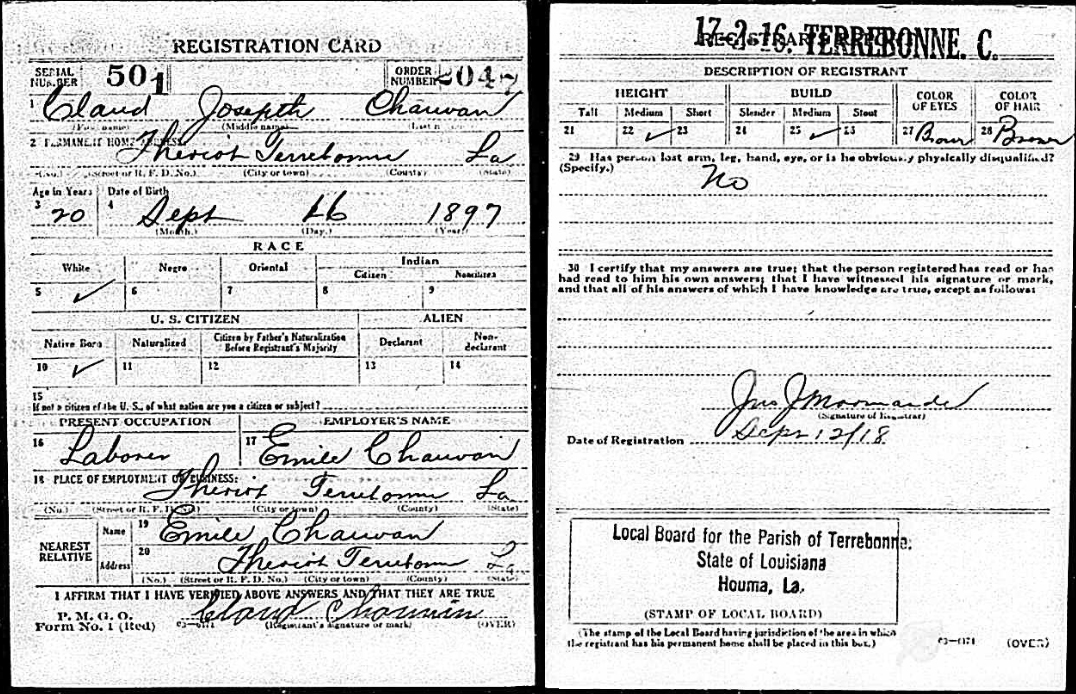 REGISTRATION CARD
SERIAL NUMBER 501 ORDER NUMBER 2047
1 Claud Joseph Chauvan
(First name) (Middle name) (Last name)
2 PERMANENT HOME ADDRESS:
Theriot Terrebonne La
(No.) (Street or R. F. D. No.) (City or town) (County) (State)
Age in Years Date of Birth
3 20 4 Sept 26 1897
(Month.) (Day.) (Year.)
RACE
White Negro Oriental Indian
Citizen Noncitizen
5 ✓ 6 7 8 9
U. S. CITIZEN ALIEN
Native Born Naturalized Citizen by Father's Naturalization Before Registrant's Majority Declarant Non-declarant
10 ✓ 11 12 13 14
15
If not a citizen of the U. S., of what nation are you a citizen or subject?
PRESENT OCCUPATION EMPLOYER'S NAME
16 Laborer 17 Emile Chauvan
18 PLACE OF EMPLOYMENT OR BUSINESS:
Theriot Terrebonne La
(No.) (Street or R. F. D. No.) (City or town) (County) (State)
NEAREST RELATIVE Name 19 Emile Chauvan
Address 20 Theriot Terrebonne La
(No.) (Street or R. F. D. No.) (City or town) (County) (State)
I AFFIRM THAT I HAVE VERIFIED ABOVE ANSWERS AND THAT THEY ARE TRUE
P. M. G. O.
Form No. 1 (Red) Claud Chauvin
(Registrant's signature or mark) (OVER)
17-2-16. TERREBONNE. C.
DESCRIPTION OF REGISTRANT
HEIGHT BUILD COLOR OF EYES COLOR OF HAIR
Tall Medium Short Slender Medium Stout
21 22 ✓ 23 24 25 ✓ 26 27 Brown 28 Brown
29 Has person lost arm, leg, hand, eye, or is he obviously physically disqualified?
(Specify.) No
30 I certify that my answers are true; that the person registered has read or has
had read to him his own answers; that I have witnessed his signature or mark,
and that all of his answers of which I have knowledge are true, except as follows:
(Signature of Registrar)
Date of Registration Sept 12/18
Local Board for the Parish of Terrebonne.
State of Louisiana
Houma, La.
(STAMP OF LOCAL BOARD)
(The stamp of the Local Board having jurisdiction of the area in which
the registrant has his permanent home shall be placed in this box.)
(OVER)